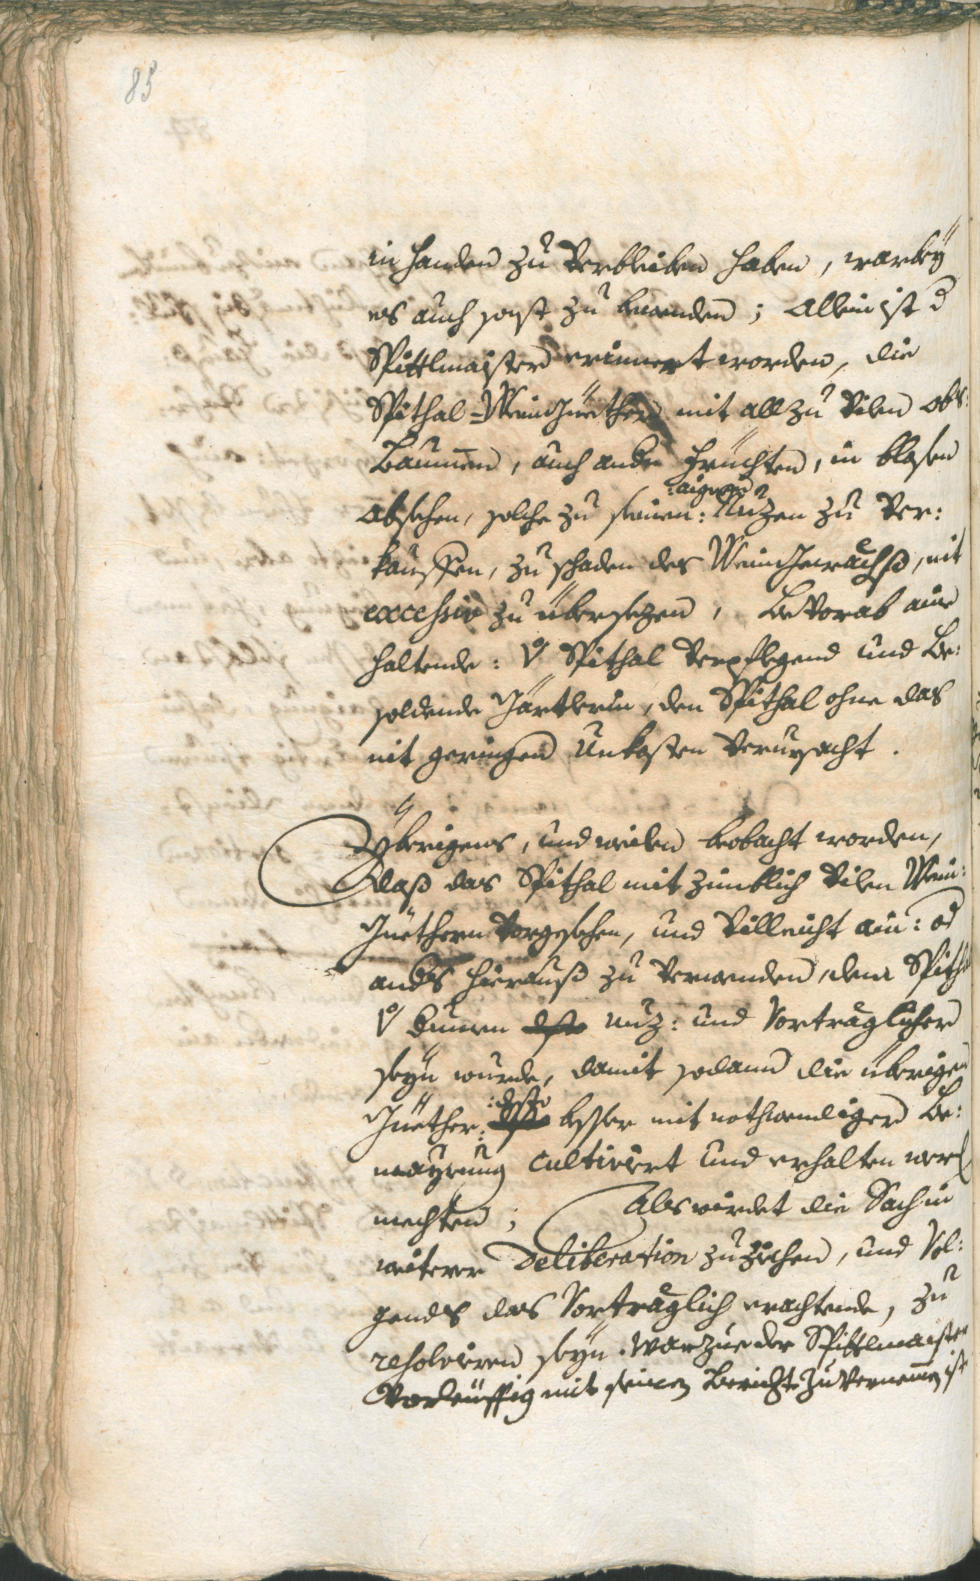 85
in handen zu verbleiben haben, warbey
es auch sonst zu bewenden; Allein ist d
Spittlmaister erinnert worden, die
Spithal-Weingüether mit allzu vilen obs:
Baumen, auch ander früchten, in blosen
absehen, solche zu seinen: :aignen Nuzen zu ver:
kauffen, zu schaden des Weingewächß, nit
excessiv zu übersezen, bevorab aine
haltende: Spithal verpflegend und be:
soldende Gärtlerin, den Spithal ohne das
nit geringen Unkosten verursacht.
Ybrigens, und weilen beobacht worden,
daß das Spithal mit zimblich vilen Wein:
Güethern vorgesehen, und villeicht ain: od
anders hierauß zu verwenden, dem Spithal
nuz: und vorträglicher
seyn wurde, damit sodann die überigen
Güether: :desto besser mit nothwendiger be:
mayrung cultiviert und erhalten werd
mechten; Als würdet die Sach in
weiterer Deliberation zuziehen, und vol:
gends das vorträglich erachtende, zu
resolvieren seyn. warzue der Spittlmaister
vorleüffig mit seinen Bericht zuvernemmen ist